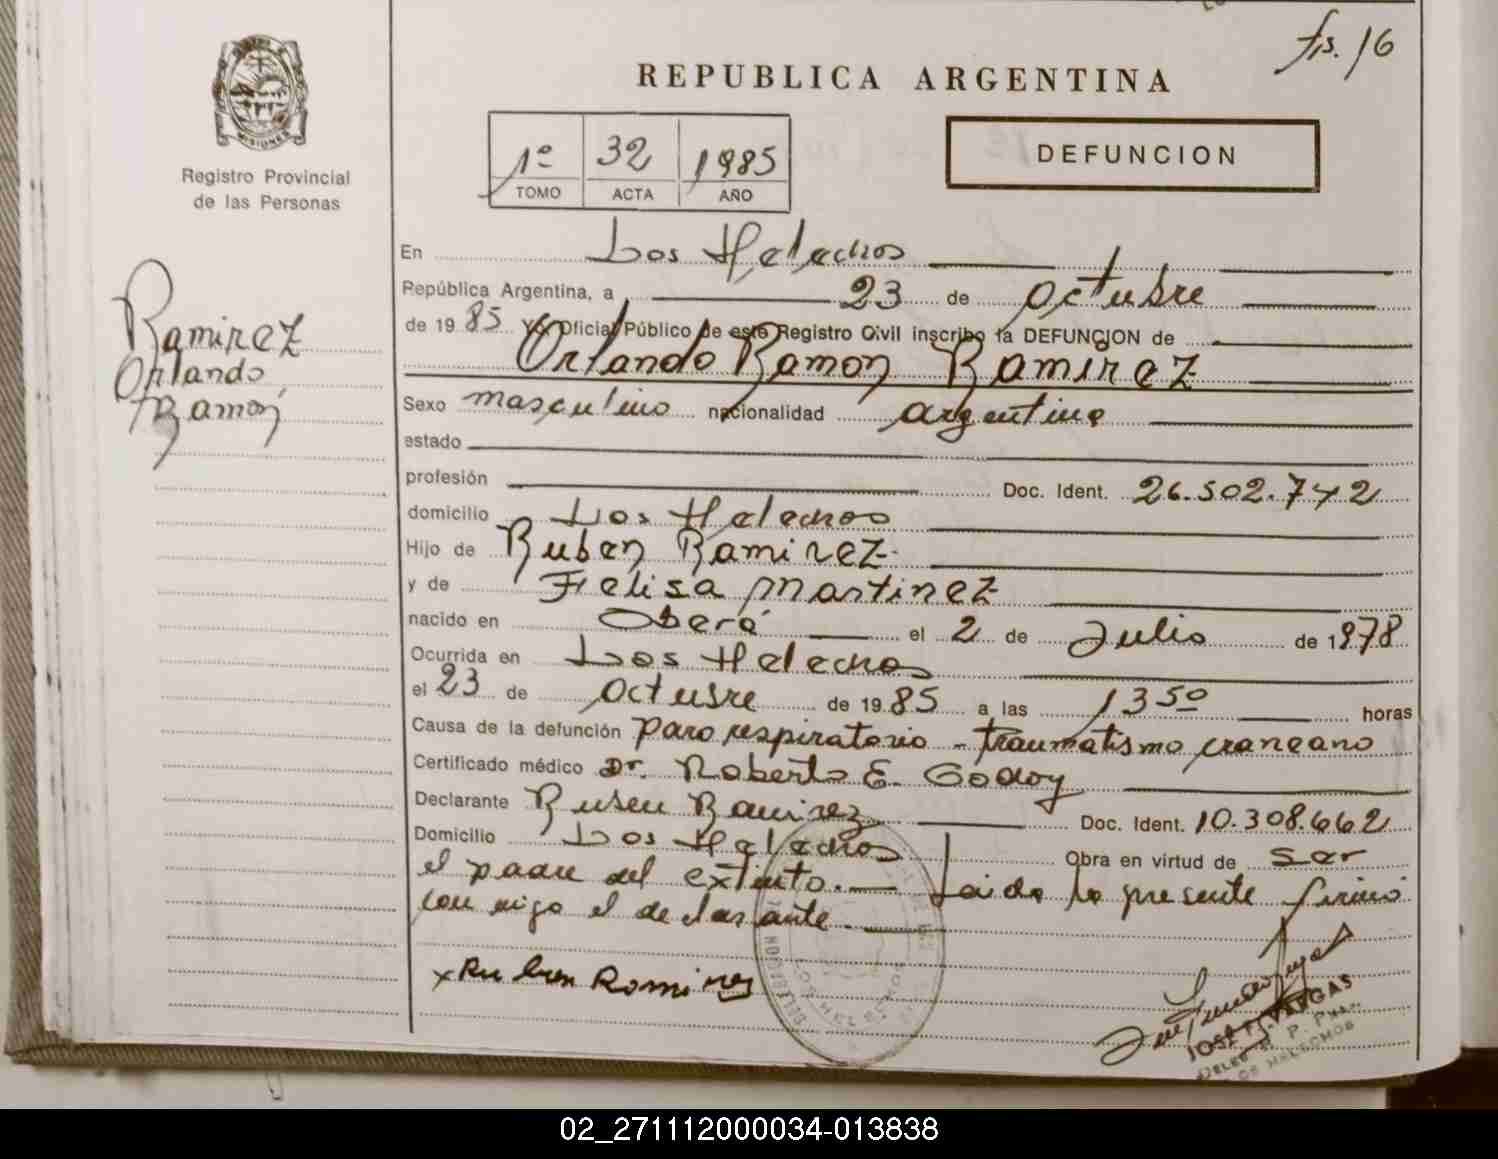 fs. 16
REPUBLICA ARGENTINA
MISIONES
Registro Provincial
de las Personas
1º 32 1985
TOMO ACTA AÑO
DEFUNCION
Ramirez
Orlando
Ramón
En Los Helechos
República Argentina, a 23 de octubre
de 1985 Yo, Oficial Público de este Registro Civil inscribo la DEFUNCION de
Orlando Ramon Ramirez
Sexo masculino nacionalidad argentina
estado
profesión Doc. Ident. 26.502.742
domicilio Los Helechos
Hijo de Ruben Ramirez
y de Felisa Martinez
nacido en Oberá el 2 de Julio de 1978
Ocurrida en Los Helechos
el 23 de octubre de 1985 a las 13 50 horas
Causa de la defunción paro respiratorio - traumatismo craneano
Certificado médico Dr. Roberto E. Godoy
Declarante Ruben Ramirez Doc. Ident. 10.308.662
Domicilio Los Helechos Obra en virtud de ser
el padre del extinto. — Leida la presente firmó
con migo el declarante. —
x Ruben Romirez
VARGAS
02_271112000034-013838